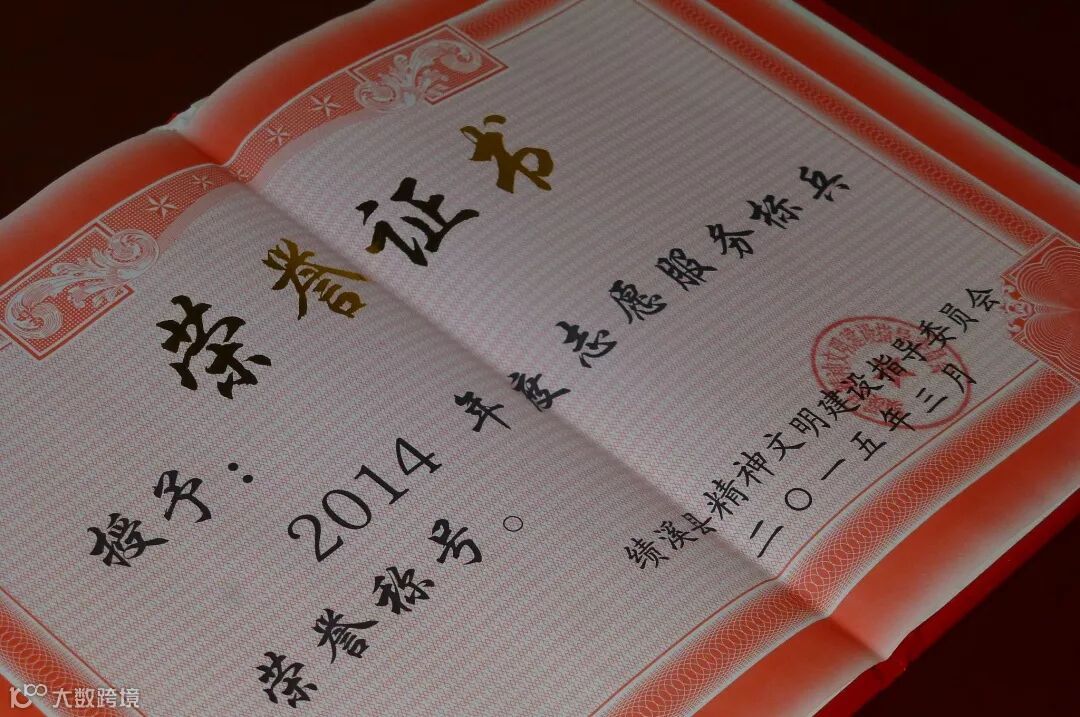 荣誉证书
授予：
2014年度志愿服务标兵
荣誉称号。
绩溪县精神文明建设指导委员会
二〇一五年三月
大数跨境